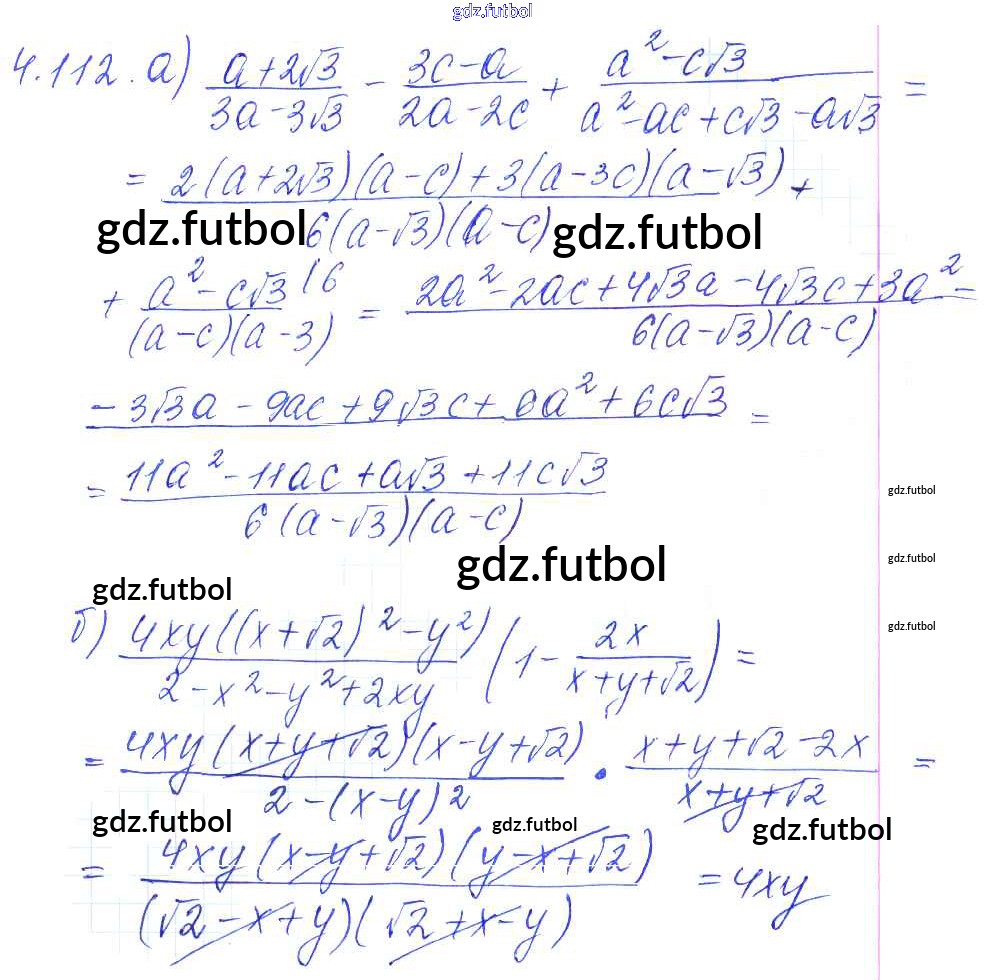 gdz.futbol
4.112. а) (a+2√3)/(3a-3√3) - (3c-a)/(2a-2c) + (a²-c√3)/(a²-ac+c√3-a√3) =
= (2(a+2√3)(a-c)+3(a-3c)(a-√3))/(6(a-√3)(a-c)) +
gdz.futbol gdz.futbol
+ (a²-c√3 |6)/((a-c)(a-3)) = (2a²-2ac+4√3a-4√3c+3a²-)/(6(a-√3)(a-c))
-3√3a-9ac+9√3c+6a²+6c√3 =
= (11a²-11ac+a√3+11c√3)/(6(a-√3)(a-c))
gdz.futbol
gdz.futbol
gdz.futbol
gdz.futbol
gdz.futbol
б) (4xy((x+√2)²-y²))/(2-x²-y²+2xy) (1-2x/(x+y+√2)) =
= (4xy(x+y+√2)(x-y+√2))/(2-(x-y)2) · (x+y+√2-2x)/(x+y+√2) =
gdz.futbol gdz.futbol gdz.futbol
= (4xy(x-y+√2)(y-x+√2))/((√2-x+y)(√2+x-y)) = 4xy